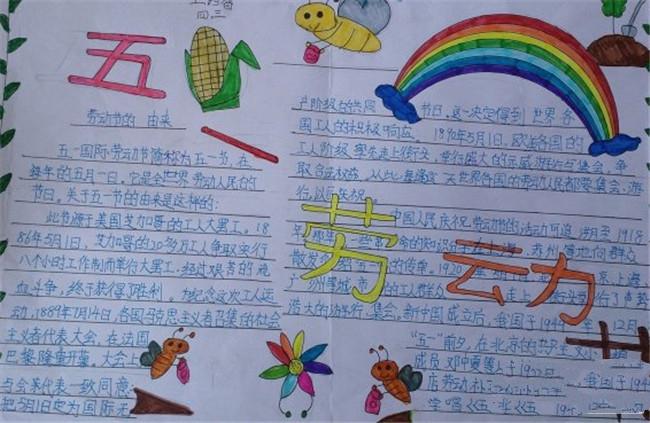 四三
五
劳动节的 由来
五一国际劳动节简称为五一节,在
每年的五月一日。它是全世界劳动人民的
节日。关于五一节的由来是这样的:
此节源于美国芝加哥的工人大罢工。18
86年5月1日,芝加哥的20多万工人争取实行
八个小时工作制而举行大罢工,经过艰苦的流
血斗争,终于获得了胜利。为纪念这次工人运
动,1889年7月14日,各国马克思主义者召集的社会
主义者代表大会,在法国
巴黎隆重开幕。大会上
与会代表一致同意:
把5月1日定为国际无
产阶级的共同 节日。这一决定得到世界各
国工人的积极响应。1890年5月1日,欧美各国的
工人阶级率先走上街头,举行盛大的示威游行与集会,争
取合法权益。从此,每逢这一天世界各国的劳动人民都要集会、游
行,以示庆祝。
中国人民庆祝劳动节的活动可追溯至1918
年 一些 命的知识 在上海、苏州等地向群众
散发 五一 的传单。1920 京、上海
广州 城 的工人群众 走上街 行了声势
浩大的游行、集会。新中国成立后,我国于1949 12月
劳动
“五一”前夕,在北京的共产主义小
成员邓中夏等
我国于194
学唱《五 》